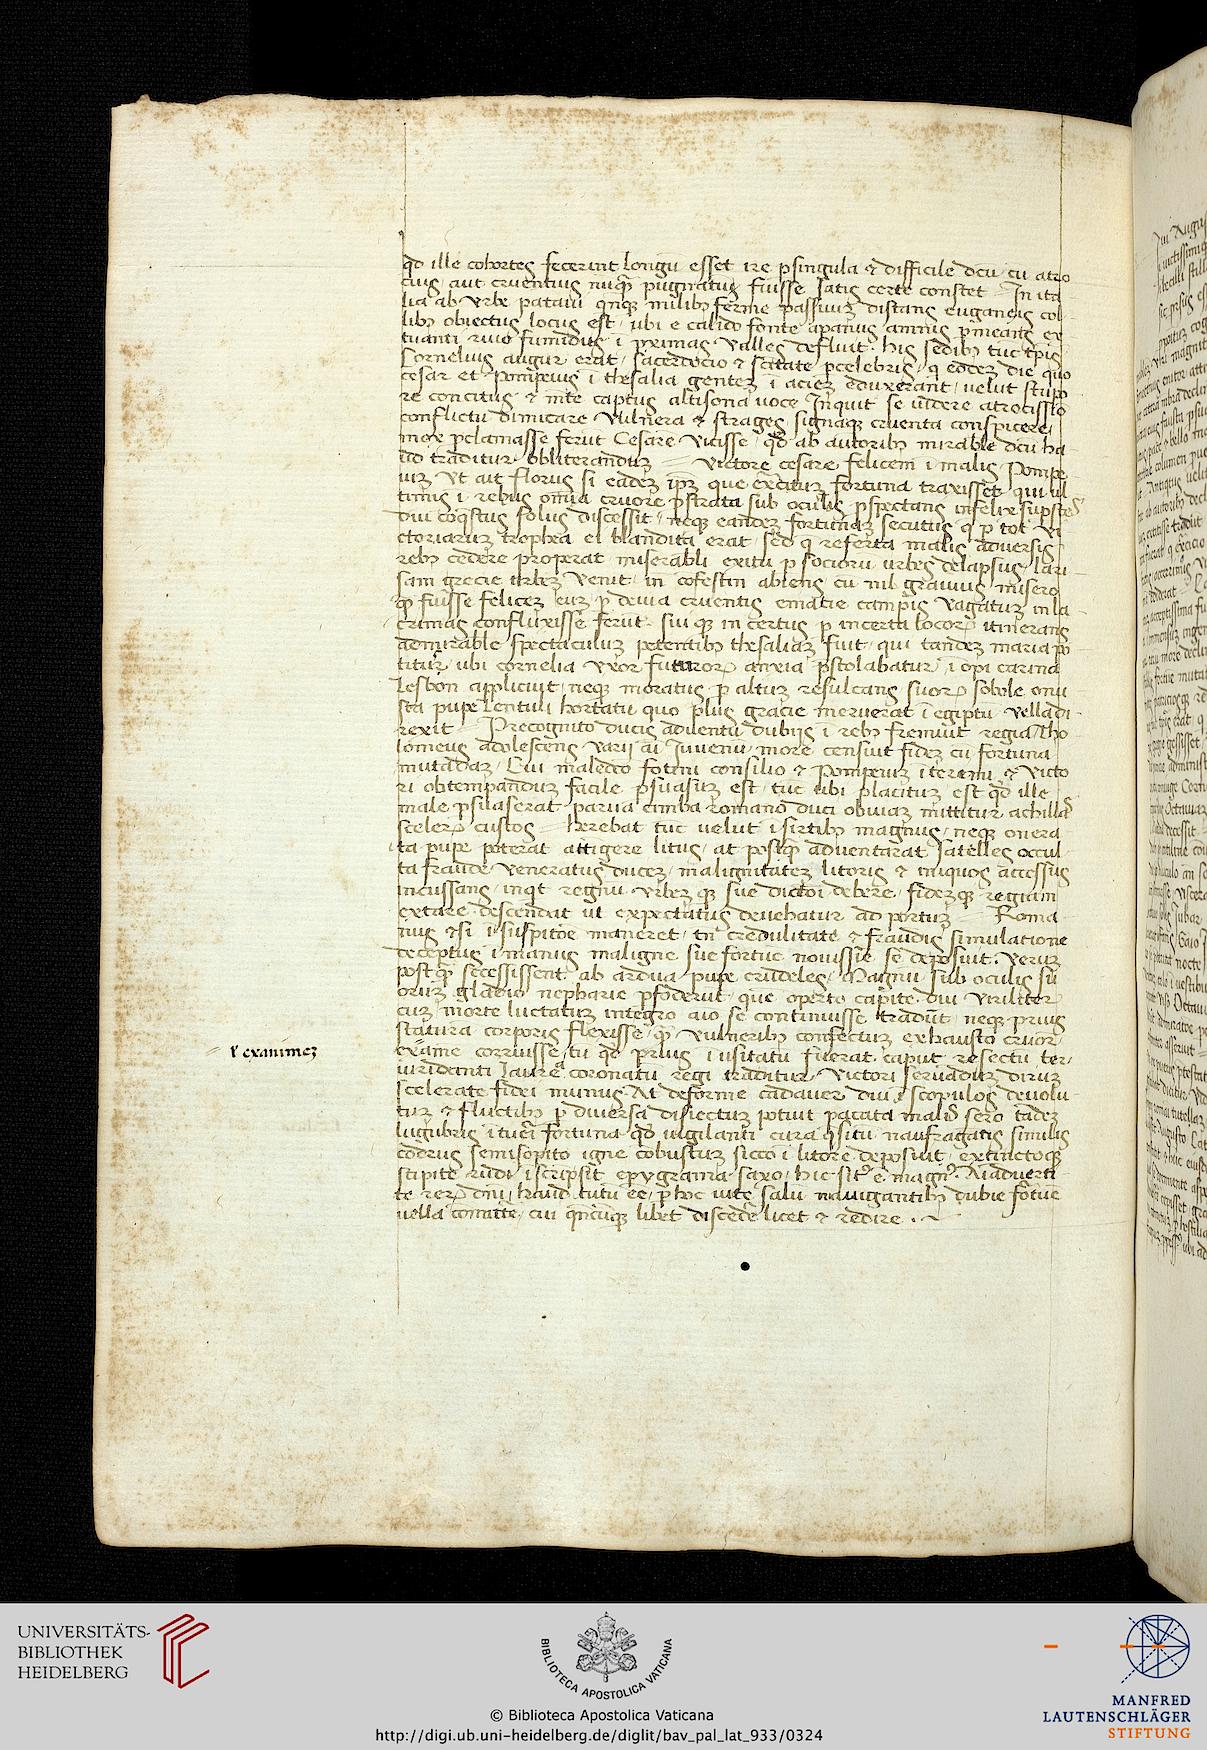 qd ille cohortes fecerint longu esset ire psingula & difficile dcu cu atro
cius aut cruentius nuqp pugnatus fuisse satis certe constet In ita
lia ab urbe patavi qnqz milibz ferme passuuz distans euganeis col
libz obiectus locus est ubi e calido fonte aponus amnis pmeans ex
tuanti rivo fumidus i pximas valles defluit his sedibz tuc tpis
Cornelius augur erat sacerdocio & scitate pcelebris q eodez die quo
cesar et Pompeius i thesalia gentez i aciez eduxerant velut stupo
re concitus & mte captus altisona uoce Inquit se uidere atrocissio
conflictu dimicare vulnera & strages signaqz cruenta conspicere
mox pclamasse ferut Cesare vicisse qd ab autoribz mirabile dcu ha
ud traditur obliteranduz Victore cesare felicem i malis Pompe
iuz ut ait florus si eadez ipz que exercituz fortuna traxisset qui ul
timus i rebus omia cruore pstrata sub oculis pspectans infelix supstes
diu coqstus solus discessit neqz eandez fortunaz secutus q p tot vi
ctoriaruz trophea ei blandita erat sed q referta malis adversis
rebz cedere properat miserabli exitu p socioru urbes delapsus lari
sam grecie urbez venit in cofestin abiens cu nil gravius misero
qp fuisse felicez euz p devia cruentis ematie campis vagatuz in la
crimas confluxisse ferut siu qz in certus p incerta locor itinerans
admirable spectaculuz petentibz thesaliaz fuit qui tandez maria po
titur ubi cornelia uxor futuror anxia pstolabatur i opi carina
Lesbon applicuit neqz moratus p altuz resulcans suor sobole onu
sta pupe lentuli hortatu quo plus gracie meruerat i egiptu vella di
rexit Precognito ducis adventu dubijs i rebz fremuit regia tho
lomeus adolescens varij ai Iuvenu more censuit fidez cu fortuna
mutandaz Cui maledco fotini consilio & Pompeiuz iteremi & victo
ri obtempanduz facile psuasuz est tuc ubi placituz est qd ille
male psuaserat parva cimba romano duci obviaz mittitur achillas
sceler custos herebat tuc uelut i sirtibz magnus neqz onera
ta pupe poterat attigere litus at postqp adventarat satelles occul
ta fraude veneratus ducez malignitatez litoris & iniquos accessus
incussans inqt regnu urbez qz sue dictoi debere fidezqz regiam
extare descendat ut expectatus devehatur ad portuz Roma
nus & si i suspitoe maneret tn credulitate & fraudis simulatione
deceptus i manus maligne sue fortue novissie se deposuit veruz
postqp secessissent ab ardua pupe crudeles Magnu sub oculis su
oruz gladio nepharie pfoderut que operto capite diu viriliter
cuz morte luctatuz integro aio se continuisse tradut neqz prius
statura corporis flexisse qp vulneribz confectuz exhausto cruor
exaime corruisse tu qd prius i usitatu fuerat caput resectu ter
viridanti laurea coronatu regi traditur victori servaduz diruz
scelerate fidei munus At deforme cadaver diu i scopulos devolu
tuz & fluctibz p diversa disiectuz potiut pacata malis sero tadez
lugubris ituei fortuna qd vigilanti cura qsitu naufragatis simulis
codrus semisopito igne cobustuz sicco i litore deposuit extinctoqz
stipite rudi iscripsit epygrama saxo hic sit e magn Aiadverti
te rer dni haud tutu ee p hoc iute salu navigantibz dubie fortue
vella comitte cui qncuqz libet discedere licet & redire
l exanimez
UNIVERSITÄTS-
BIBLIOTHEK
HEIDELBERG
BIBLIOTECA APOSTOLICA VATICANA
© Biblioteca Apostolica Vaticana
http://digi.ub.uni-heidelberg.de/diglit/bav_pal_lat_933/0324
MANFRED
LAUTENSCHLÄGER
STIFTUNG